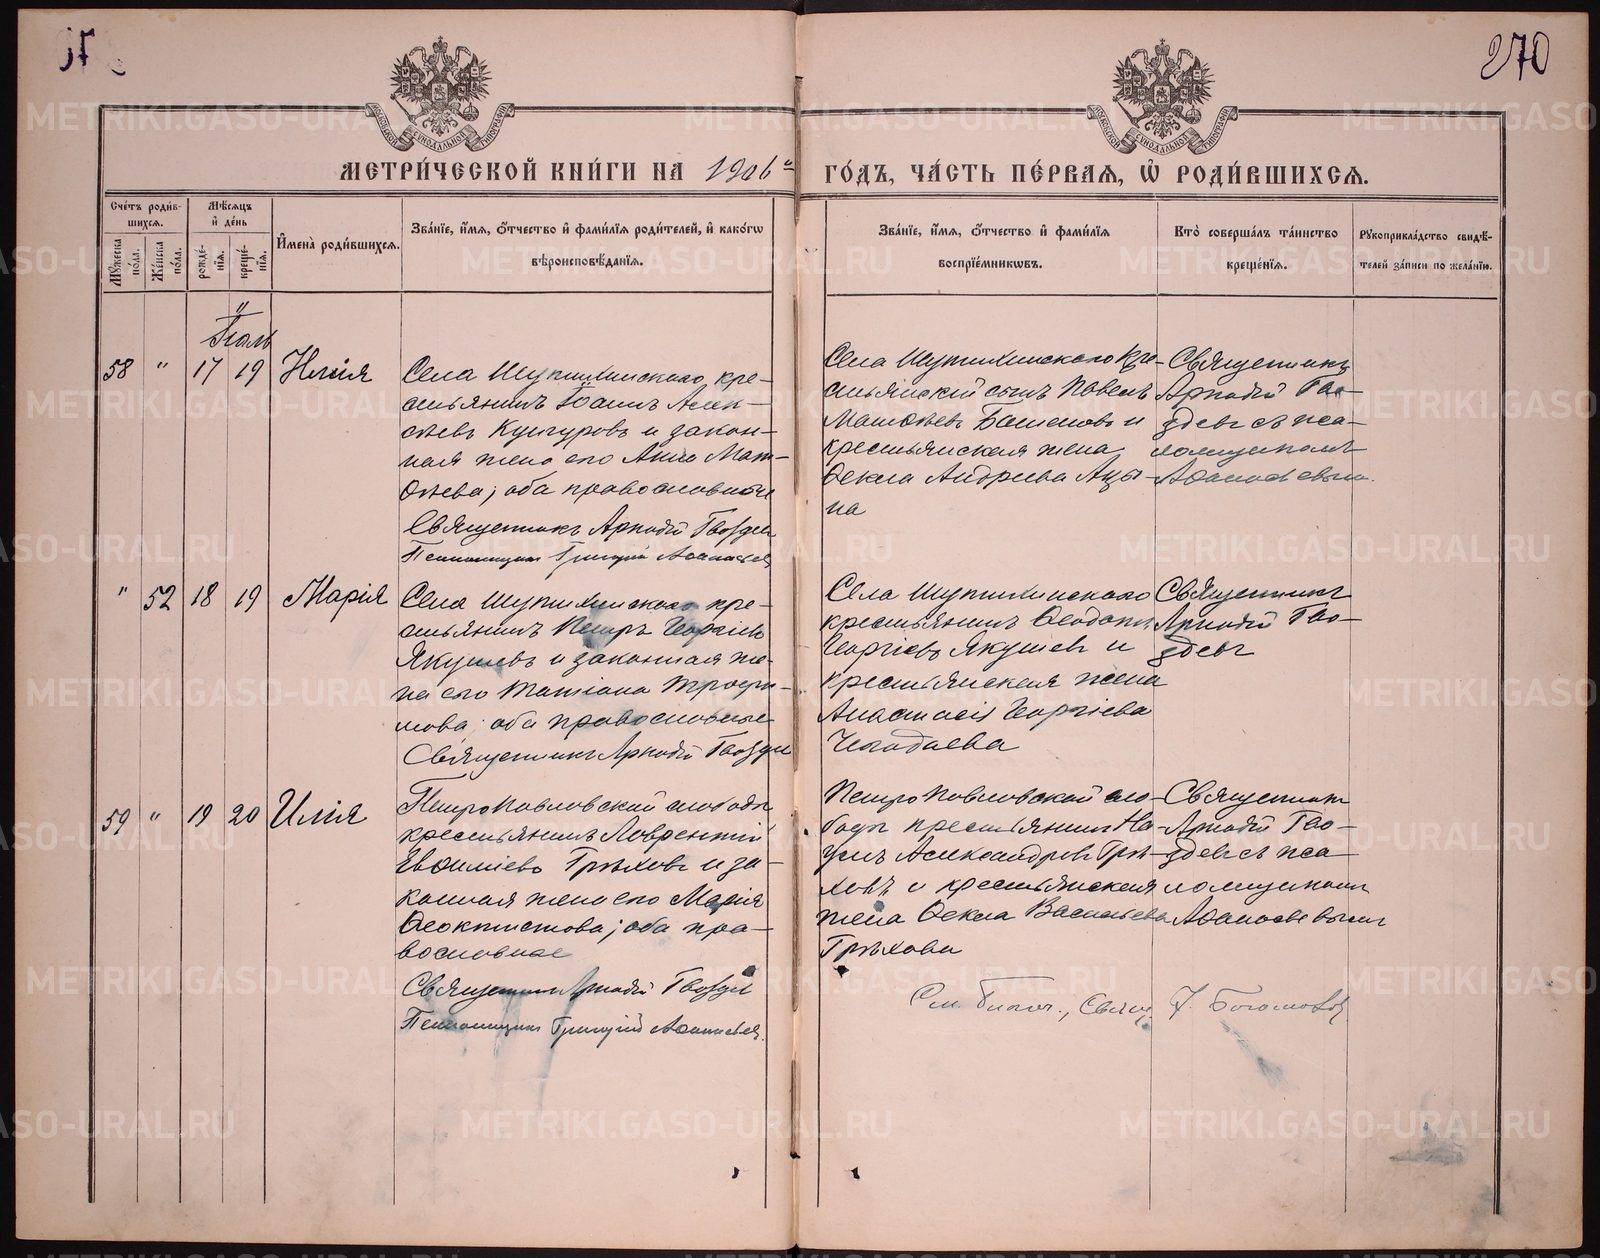 270
МОСКОВСКОЙ СѴНОДАЛЬНОЙ ТИПОГРАФІИ
МОСКОВСКОЙ СѴНОДАЛЬНОЙ ТИПОГРАФІИ
МЕТРИ́ЧЕСКОЙ КНИ́ГИ НА 1906й ГО́ДЪ, ЧА́СТЬ ПЕ́РВАѦ, Ѽ РОДИ́ВШИХСѦ.
Сче́тъ роди́вшихсѧ.
Мѹ́жеска по́ла.
Же́нска по́ла.
Мѣ́сѧцъ и҆ де́нь
рожде́нїѧ.
креще́нїѧ.
И҆мена̀ роди́вшихсѧ.
Зва́нїе, и҆́мѧ, ѻ҆́тчество и҆ фами́лїѧ роди́телей, и҆ како́гѡ вѣроисповѣ́данїѧ.
Зва́нїе, и҆́мѧ, ѻ҆́тчество и҆ фами́лїѧ воспрїе́мникѡвъ.
Кто̀ соверша́лъ та́инство креще́нїѧ.
Рѹкоприкла́дство свидѣ́телей за́писи по жела́нїю.
Іюль
58 " 17 19 Илія
Села Шутихинскаго кре-
стьянинъ Іоаннъ Алек-
сѣевъ Кунгуровъ и закон-
ная жена его Анна Мат-
ѳѣева; оба православные
Священникъ Аркадій Гвоздев
Псаломщикъ Григорій Аѳанасьев
Села Шутихинскаго кре-
стьянскій сынъ Павелъ
Матѳѣевъ Башковъ и
крестьянская жена
Ѳекла Андреева
на
Священникъ
Аркадій Гво-
здевъ съ пса-
ломщикомъ
Аѳанасьевым.
" 52 18 19 Марія
Села Шутихинскаго кре-
стьянинъ Петръ Георгіев
Якушевъ и законная же-
на его Татіана Трофи-
мова; оба православные
Священникъ Аркадій Гвоздев
Села Шутихинскаго
крестьянинъ Ѳеодотъ
Георгіевъ Якушевъ и
крестьянская жена
Анастасія Георгіева
Чегодаева
Священникъ
Аркадій Гво-
здевъ
59 " 19 20 Илія
Петропавловской слободы
крестьянинъ Лаврентій
Евѳиміевъ Грѣховъ и за-
конная жена его Марія
Ѳеоктистова; оба пра-
вославные
Священникъ Аркадій Гвоздев
Псаломщикъ Григорій Аѳанасьев.
Петропавловской сло-
боды крестьянинъ На-
умъ Александровъ Грѣ-
ховъ и крестьянская
жена Ѳекла Васильева
Грѣхова
Священникъ
Аркадій Гво-
здевъ съ пса-
ломщикомъ
Аѳанасьевымъ
См. Благоч., Свящ. Богомолов
METRIKI.GASO-URAL.RU